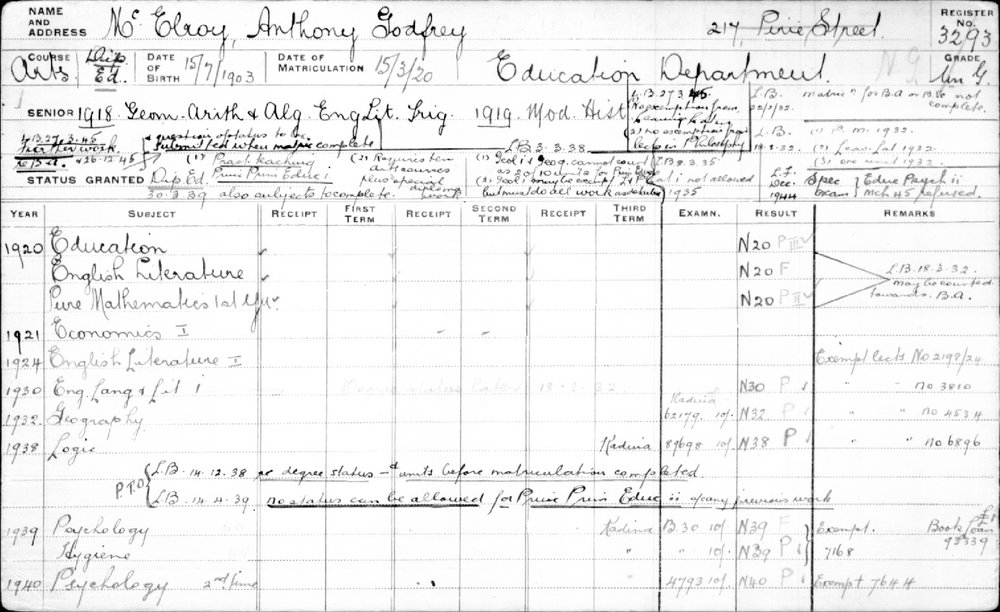 NAME AND ADDRESS Mc Elroy, Anthony Godfrey 217, Pirie Street REGISTER No. 3293
COURSE Arts. Dip Ed. DATE OF BIRTH 15/7/1903 DATE OF MATRICULATION 15/3/20 Education Department. N.G GRADE Un G.
SENIOR 1918. Geom. Arith & Alg. Eng Lit. Trig. 1919. Mod. Hist
L.B. 27 3 45
No exemption from
Leaving Latin
(2) no exemption from
lects in Philosophy
L.B. matricn for B.A or B.Sc not complete.
L.B. (1) P.M. 1932.
18.3.32. (2) Leav. Lat 1932
(3) one unit 1932.
L.B. 27.3.45
Further work
& question of status to be
submitted when matric complete
& 26.12.45
STATUS GRANTED Dip Ed.
30.3.39
(1) Pract. teaching
Princ Prim Educ i
also subjects to complete.
(2) Requires ten
courses
plus special
diploma work
L.B 3.3.38
(1) Geol i & Geog. cannot count
but must do all work
L.B 8.3.35
not allowed
1935
L.F. Dec. 1944
Spec Exam
Educ Psych ii
Mch 45 refused.
YEAR SUBJECT RECEIPT FIRST TERM RECEIPT SECOND TERM RECEIPT THIRD TERM EXAMN. RESULT REMARKS
1920 Education N20 P III
English Literature N20 F L.B. 18.3.32.
may be counted
towards B.A.
Pure Mathematics 1st Yr N20 P II
1921 Economics I - -
1924 English Literature I Exempt lects No 2198/24
1930 Eng Lang & Lit i 18-3-32 N30 P " " no 3810
1932 Geography Kadina 62179 10/- N32 P " " no 4534
1938 Logic Kadina 89698 10/- N38 P " " no 6896
P.T.O L.B. 14.12.38 re degree status - 4 units before matriculation completed
L.B. 14.4.39. no status can be allowed for Princ Prim Educ ii of any previous work
1939 Psychology Kadina B 30 10/- N39 F Exempt. Book loan £1
93339
Hygiene " " 10/- N39 P 7168
1940 Psychology 2nd time " 4793 10/- N40 P Exempt 7644